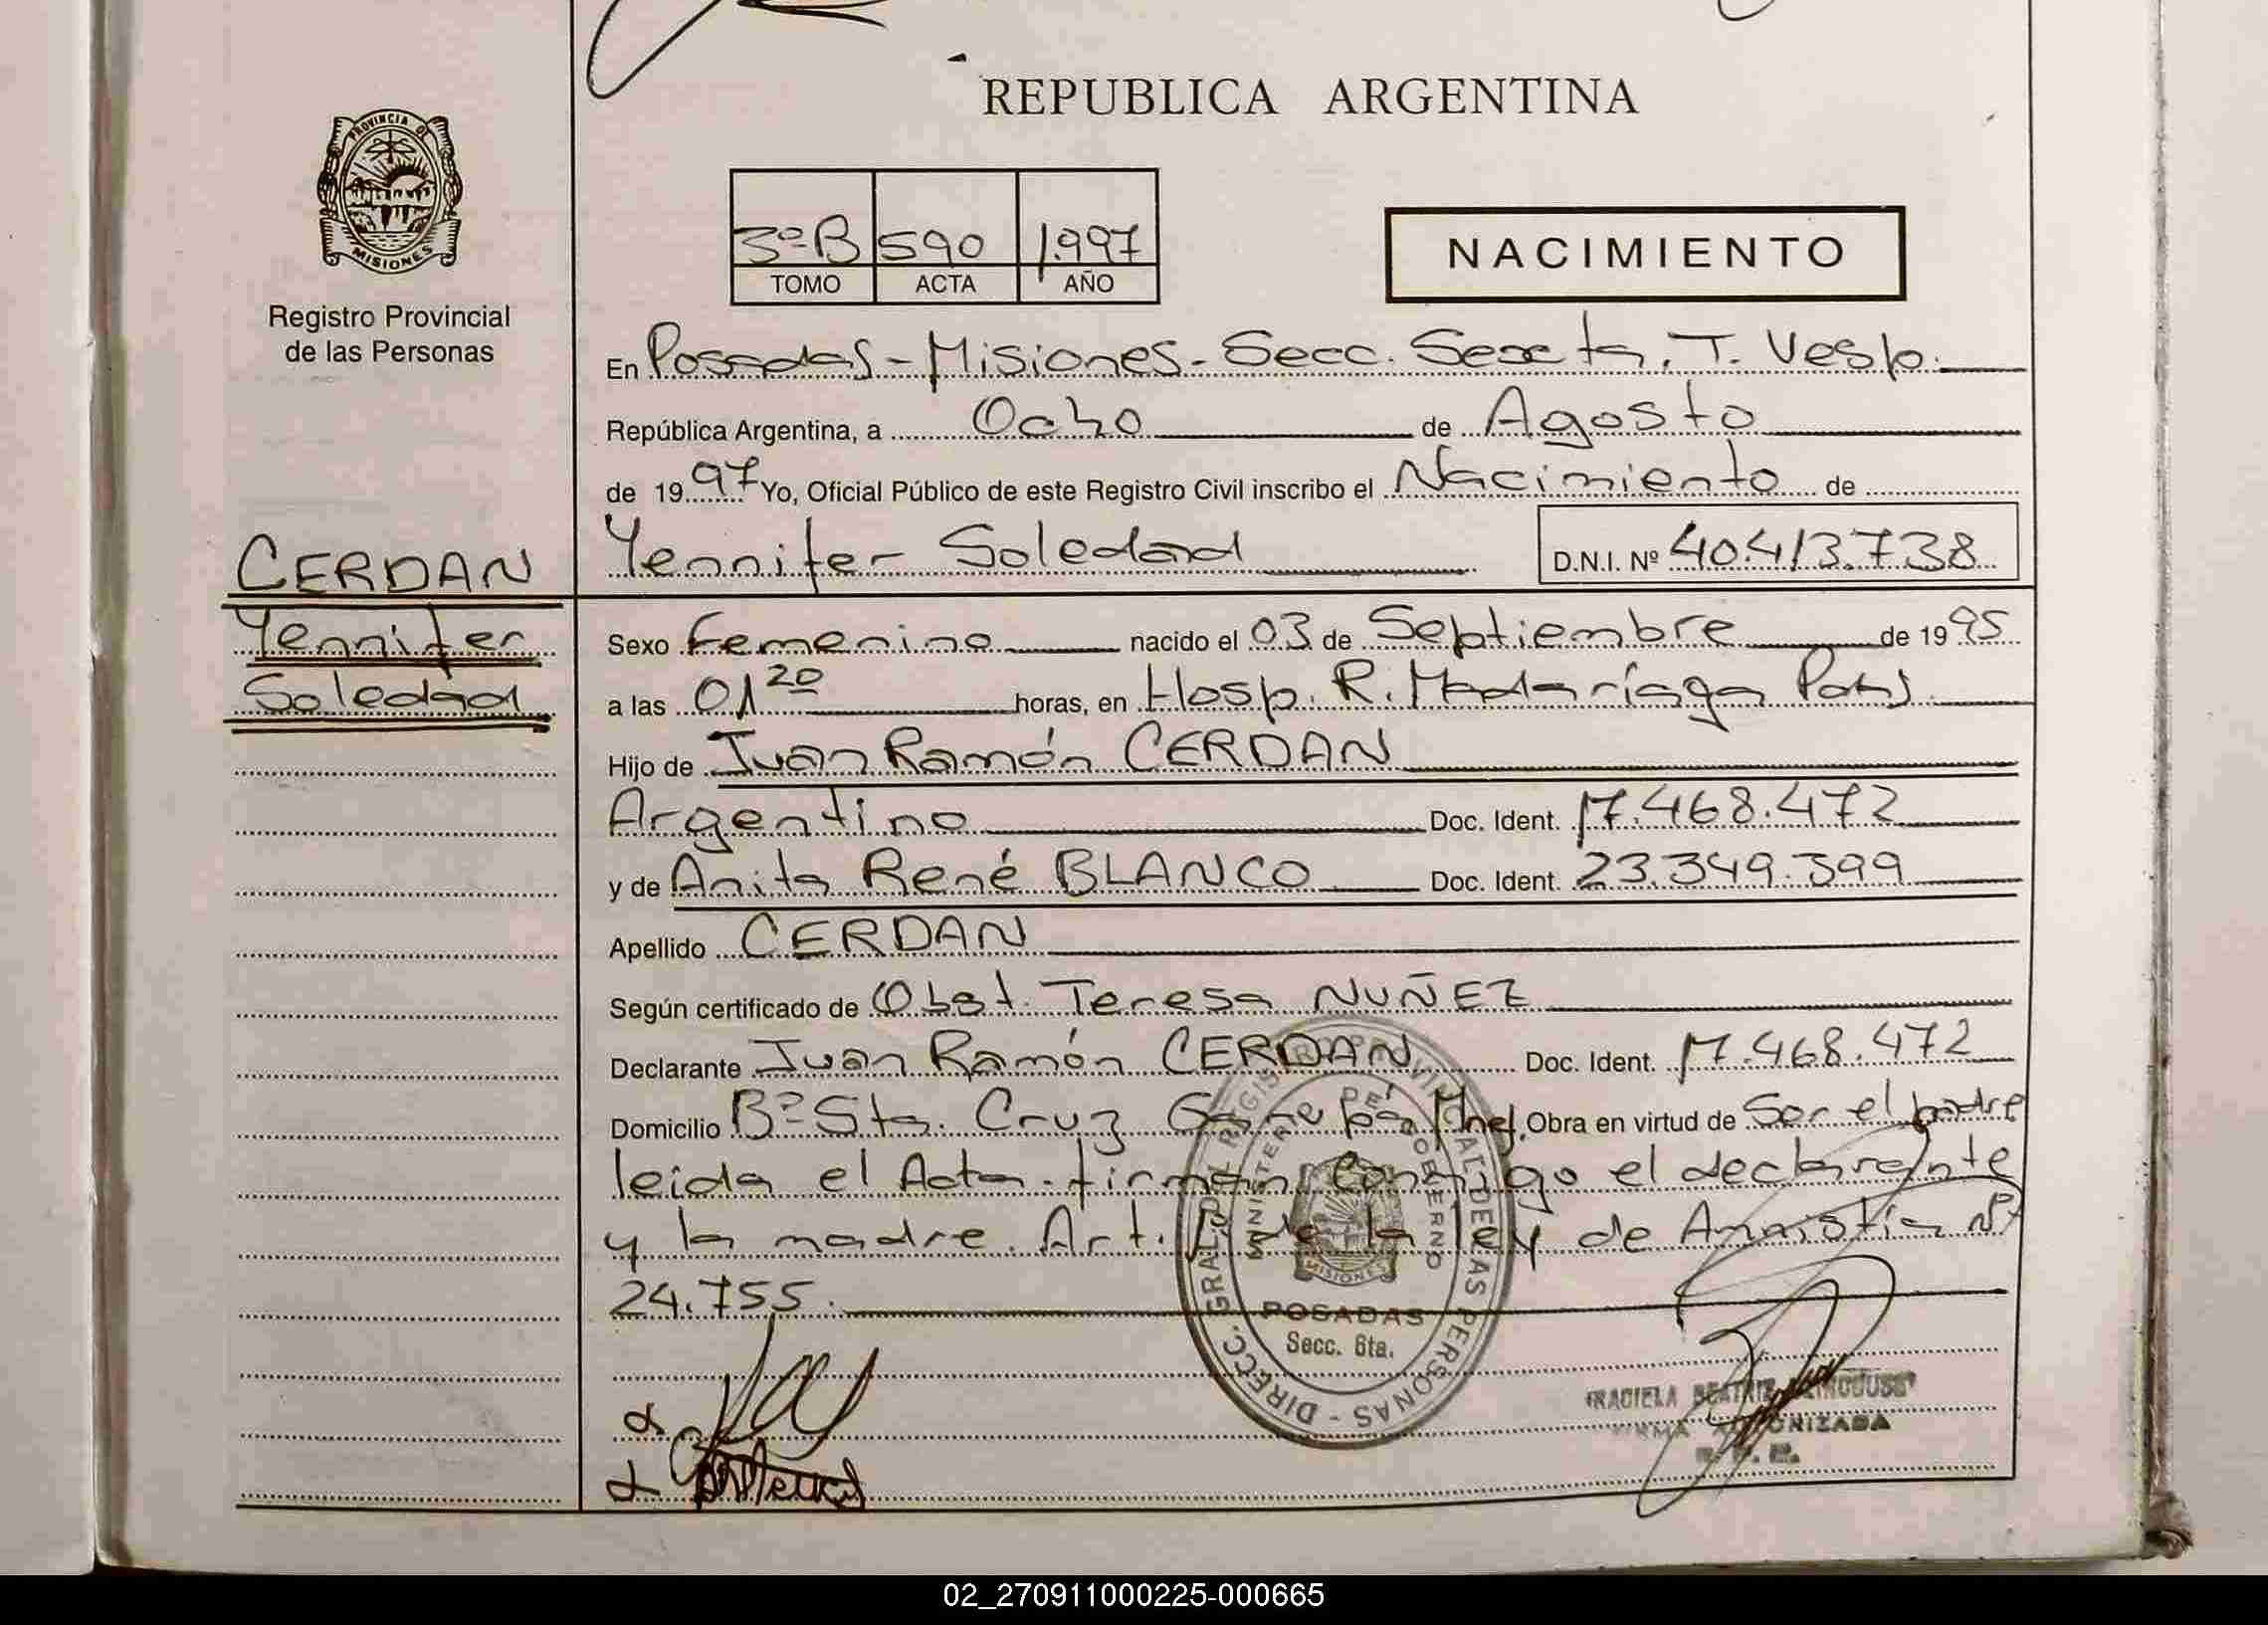 REPUBLICA ARGENTINA
PROVINCIA DE
MISIONES
Registro Provincial
de las Personas
3º B 590 1.997
TOMO ACTA AÑO
NACIMIENTO
En Posadas - Misiones - Secc. Sexta. T. Vesp.
República Argentina, a Ocho de Agosto
de 1997 Yo, Oficial Público de este Registro Civil inscribo el Nacimiento de
Yennifer Soledad D.N.I. Nº 40.413.738
CERDAN
Yennifer
Soledad
Sexo Femenino nacido el 03 de Septiembre de 1995
a las 01 20 horas, en Hosp. R. Madariaga Pdas.
Hijo de Juan Ramón CERDAN
Argentino Doc. Ident. 17.468.472
y de Anita René BLANCO Doc. Ident. 23.349.399
Apellido CERDAN
Según certificado de Obst. Teresa NUÑEZ
Declarante Juan Ramón CERDAN Doc. Ident. 17.468.472
Domicilio Bº Sta. Cruz Obra en virtud de Ser el padre
leida el Acta. firman conmigo el declarante
y la madre. Art. de la ley de Amnistía Nº
24.755.
DIRECC. GRAL. REGISTRO PROVINCIAL DE LAS PERSONAS
MINISTERIO DE GOBIERNO
MISIONES
POSADAS
Secc. 6ta.
GRACIELA BEATRIZ
FIRMA AUTORIZADA
02_270911000225-000665